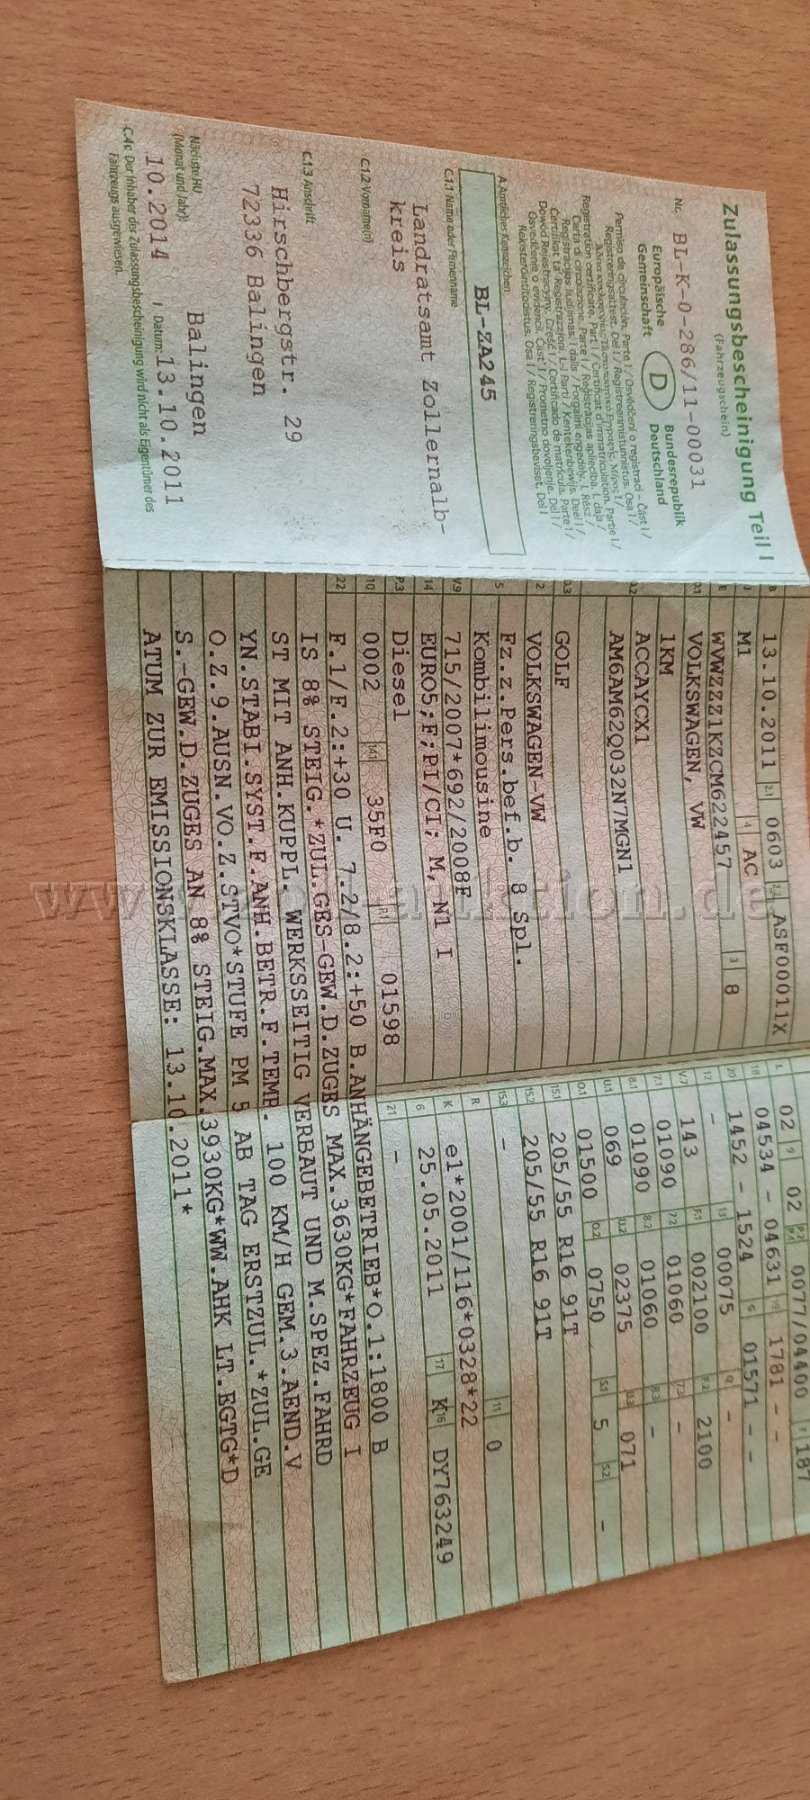 Zulassungsbescheinigung Teil I
(Fahrzeugschein)
Nr. BL-K-0-286/11-00031
Europäische
Gemeinschaft
D
Bundesrepublik
Deutschland
A Amtliches Kennzeichen
BL-ZA245
C.1.1 Name oder Firmenname
Landratsamt Zollernalb-
kreis
C.1.2 Vorname(n)
C.1.3 Anschrift
Hirschbergstr. 29
72336 Balingen
Nächste HU
(Monat und Jahr)
10.2014
Balingen
Datum: 13.10.2011
C.4c Der Inhaber der Zulassungsbescheinigung wird nicht als Eigentümer des
Fahrzeugs ausgewiesen.
B 13.10.2011 2.1 0603 2.2 ASF00011X
J M1 4 AC
E WVWZZZ1KZCM622457 3 8
D.1 VOLKSWAGEN, VW
1KM
D.2 ACCAYCX1
AM6AM62Q032N7MGN1
D.3 GOLF
2 VOLKSWAGEN-VW
5 Fz.z.Pers.bef.b. 8 Spl.
Kombilimousine
V.9 715/2007*692/2008F
14 EURO5;F;PI/CI; M, N1 I
P.3 Diesel
10 0002 14.1 35F0 P.1 01598
L 02 9 02 P.2 P.4 0077/04400 T 187
18 04534 - 04631 19 1781 - -
20 1452 - 1524 G 01571 - -
12 - 13 00075 Q -
V.7 143 F.1 002100 F.2 2100
7.1 01090 7.2 01060 7.3 -
8.1 01090 8.2 01060 8.3 -
U.1 069 U.2 02375 U.3 071
O.1 01500 O.2 0750 S.1 5 S.2 -
15.1 205/55 R16 91T
15.2 205/55 R16 91T
15.3 -
R 11 0
K e1*2001/116*0328*22
6 25.05.2011 17 K 16 DY763249
21 -
22 F.1/F.2:+30 U. 7.2/8.2:+50 B.ANHÄNGEBETRIEB*O.1:1800 B
IS 8% STEIG.*ZUL.GES-GEW.D.ZUGES MAX.3630KG*FAHRZEUG I
ST MIT ANH.KUPPL. WERKSSEITIG VERBAUT UND M.SPEZ.FAHRD
YN.STABI.SYST.F.ANH.BETR.F.TEMP. 100 KM/H GEM.3.AEND.V
O.Z.9.AUSN.VO.Z.STVO*STUFE PM 5 AB TAG ERSTZUL.*ZUL.GE
S.-GEW.D.ZUGES AN 8% STEIG.MAX.3930KG*WW.AHK LT.EGTG*D
ATUM ZUR EMISSIONSKLASSE: 13.10.2011*